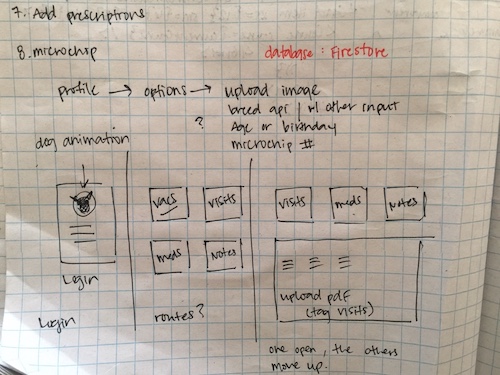 7. Add prescriptions
8. microchip
database : Firestore
profile → options → upload image
breed api | w/ other input
?
Age or birthday
microchip #
dog animation
vacs
visits
meds
Notes
visits
meds
Notes
Login
upload pdf
(tag visits)
Login
routes?
one open, the others
move up.